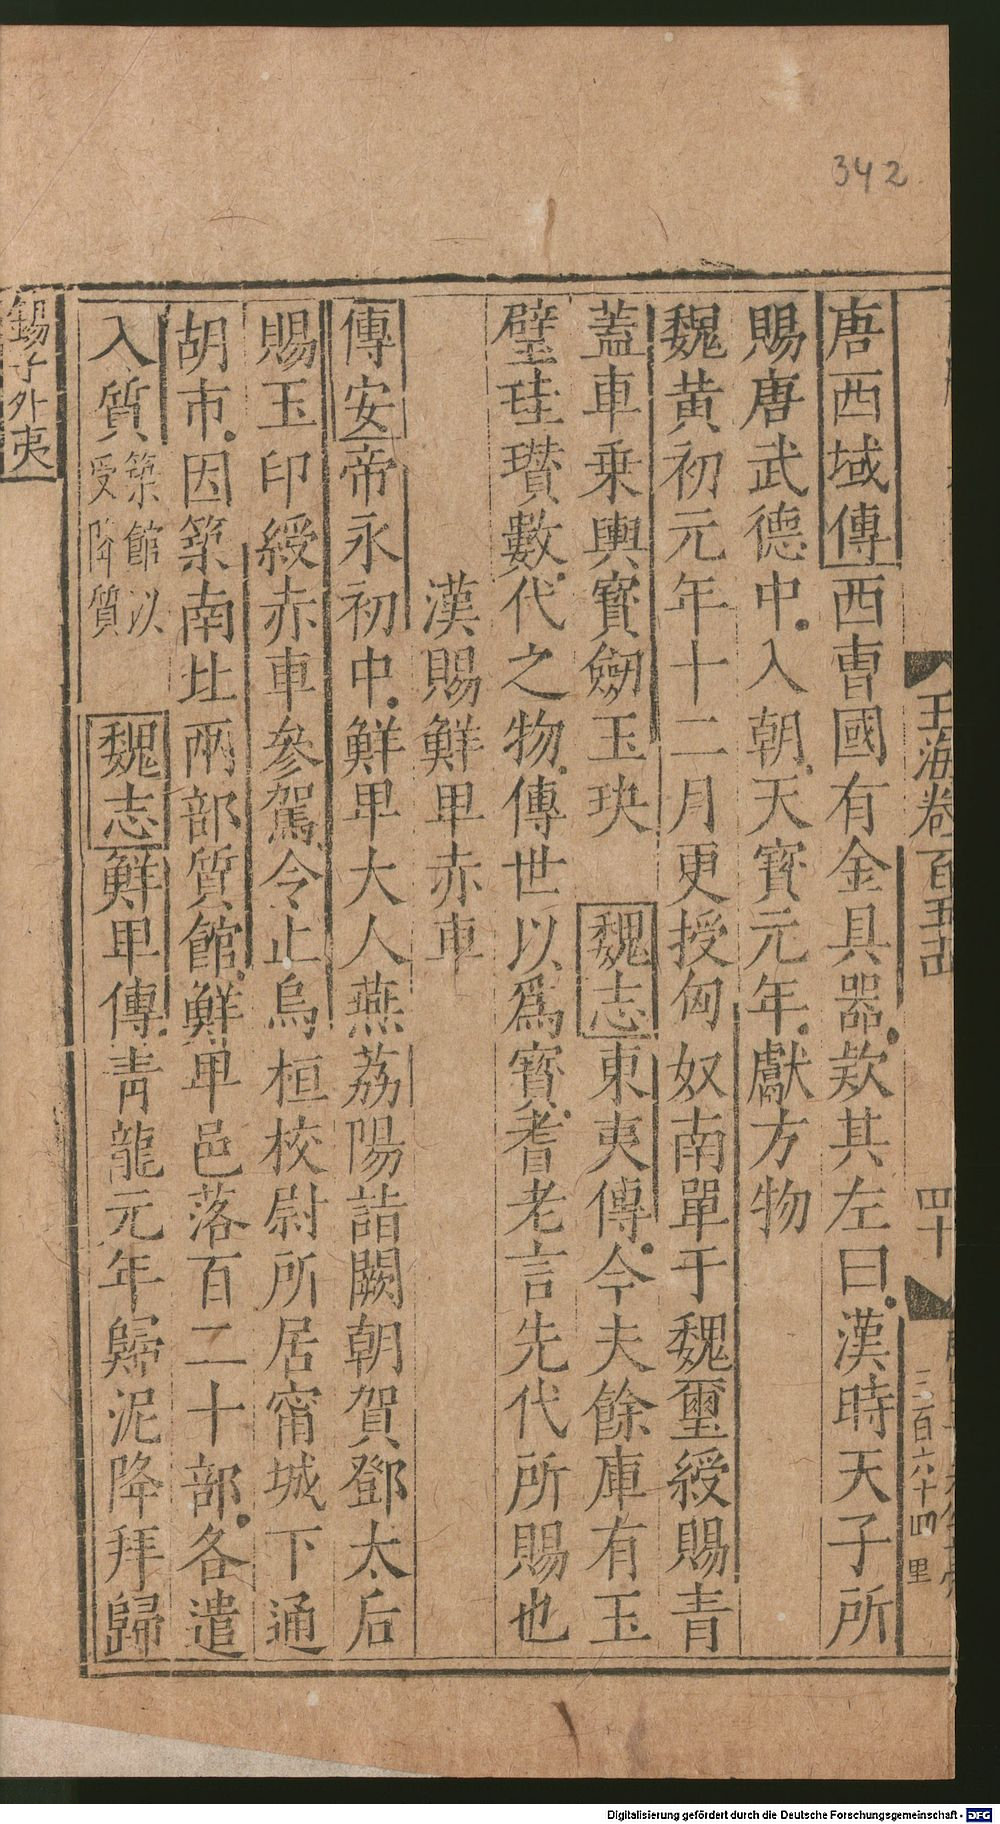 342
玉海卷百五十四
四十
三百六十四
里
唐西域傳西曹國有金具器欵其左曰漢時天子所
賜唐武德中入朝天寳元年獻方物
魏黄初元年十二月更授匈奴南單于魏璽綬賜青
蓋車乗輿寳劒玉玦 魏志東夷傳今夫餘庫有玉
璧珪瓉數代之物傳世以爲寳耆老言先代所賜也
漢賜鮮卑赤車
傳安帝永初中鮮卑大人燕荔陽詣闕朝賀鄧太后
賜玉印綬赤車參駕令止烏桓校尉所居甯城下通
胡市因築南北兩部質館鮮卑邑落百二十部各遣
入質
築館以
受降質
魏志鮮卑傳青龍元年歸泥降拜歸
錫予外夷
Digitalisierung gefördert durch die Deutsche Forschungsgemeinschaft - DFG